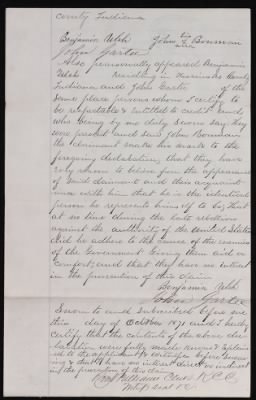 County Indiana
Benjamin Welch John Bowman
John Garter
Also personally appeared Benjamin
Welch residing in Kosciusko County
Indiana and John Garter of the
same place persons whom I certify to
be respectable & entitled to credit and
who being by me duly sworn say they
were present and saw John Bowman
the claimant make his mark to the
foregoing declaration, that they have
every reason to believe from the appearance
of said claimant and their acquaint
ance with him that he is the identical
person he represents himself to be, that
at no time during the late rebellion
against the authority of the United States
did he adhere to the cause of the enemies
of the Government giving them aid or
comfort, and that they have no interest
in the prosecution of this claim
Benjamin Welch
John Garter
Sworn to and subscribed before me
this day of October 1871 and I hereby
certify that the contents of the above dec
laration were fully made known & explained
to the applicant & witnesses before swear
ing & that I have no interest direct or indirect
in the prosecution of this claim
Williams Clerk K.C.C.